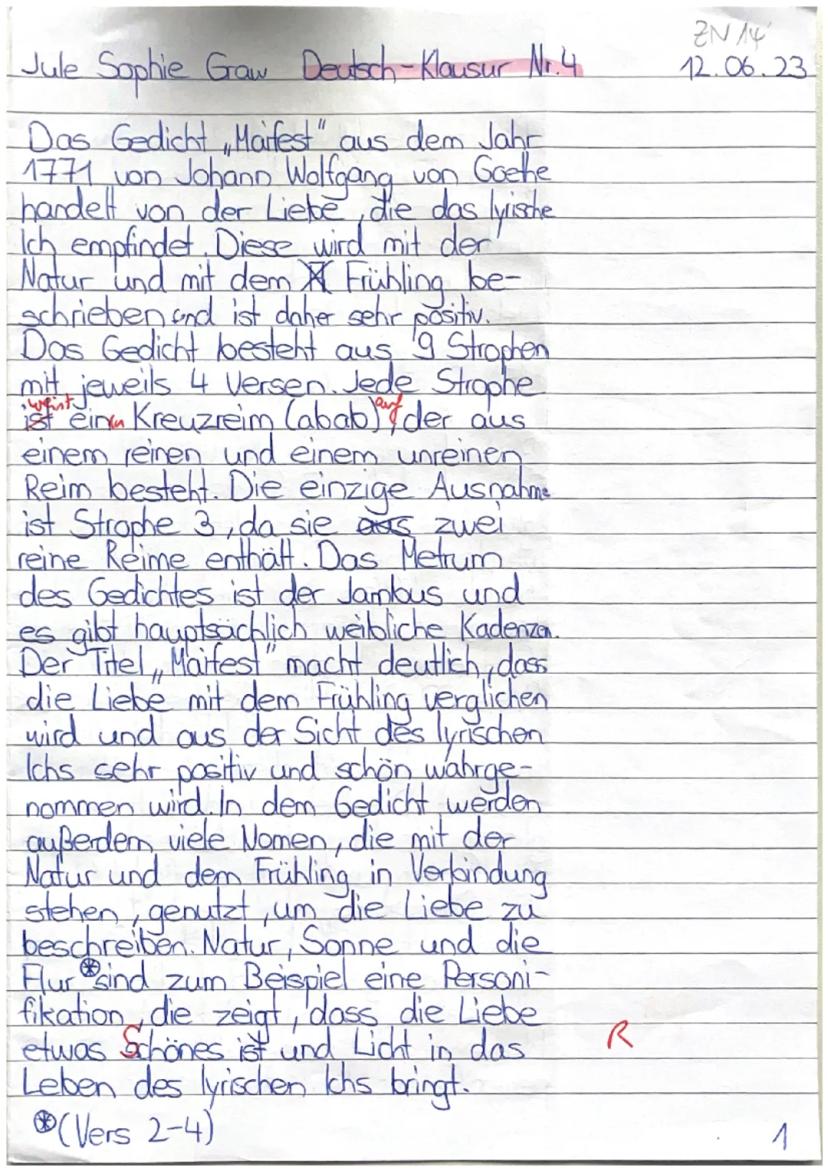 ZN 14
Jule Sophie Graw Deutsch-Klausur Nr. 4 12.06.23
Das Gedicht „Maifest" aus dem Jahr
1771 von Johann Wolfgang von Goethe
handelt von der Liebe, die das lyrische
Ich empfindet. Diese wird mit der
Natur und mit dem Frühling be-
schrieben und ist daher sehr positiv.
Das Gedicht besteht aus 9 Strophen
mit jeweils 4 Versen. Jede Strophe
weist auf
ist einen Kreuzreim (abab), der aus
einem reinen und einem unreinen
Reim besteht. Die einzige Ausnahme
ist Strophe 3, da sie aus zwei
reine Reime enthält. Das Metrum
des Gedichtes ist der Jambus und
es gibt hauptsächlich weibliche Kadenzen.
Der Titel „Maifest" macht deutlich, dass
die Liebe mit dem Frühling verglichen
wird und aus der Sicht des lyrischen
Ichs sehr positiv und schön wahrge-
nommen wird. In dem Gedicht werden
außerdem viele Nomen, die mit der
Natur und dem Frühling in Verbindung
stehen, genutzt, um die Liebe zu
beschreiben. Natur, Sonne und die
Flur * sind zum Beispiel eine Personi-
fikation, die zeigt, dass die Liebe
etwas Schönes ist und Licht in das R
Leben des lyrischen Ichs bringt.
* (Vers 2-4) 1